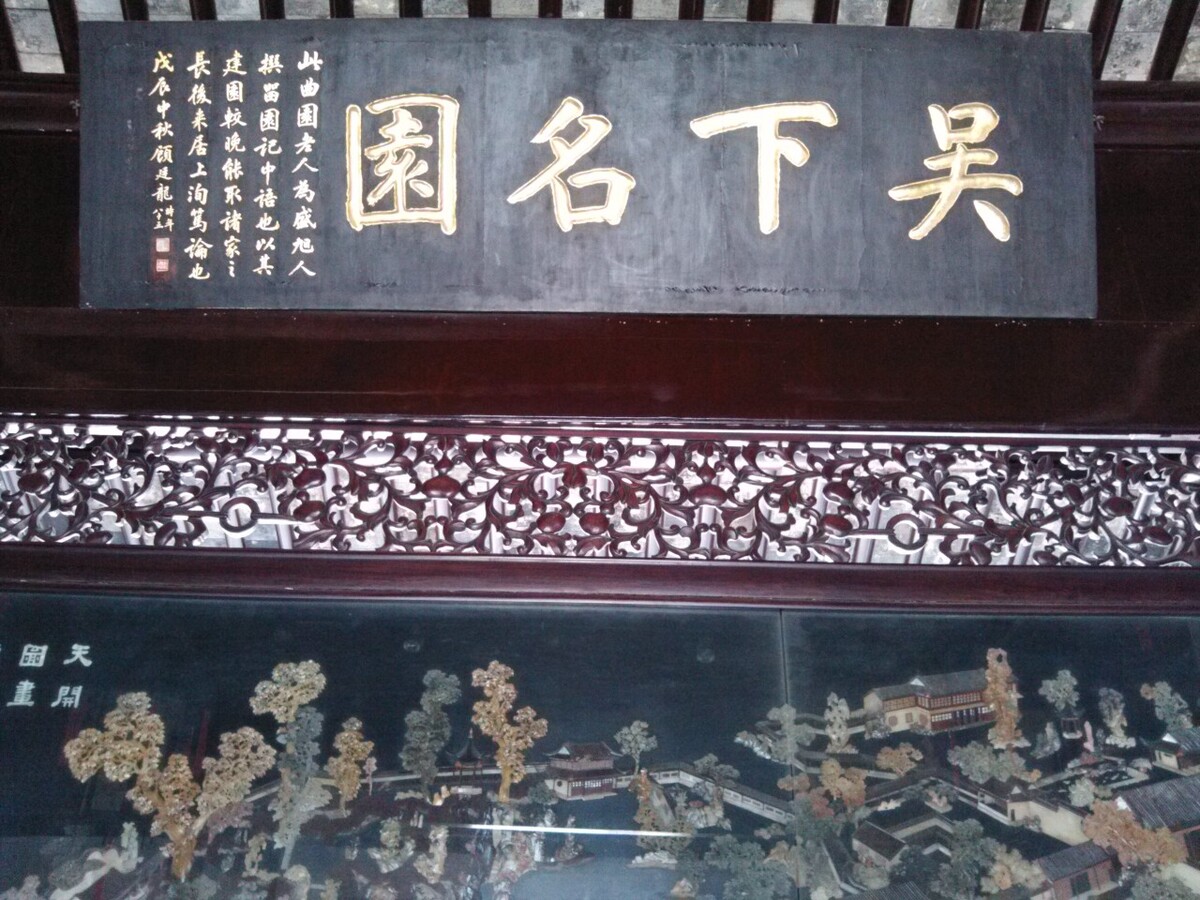 吳下名園
此曲園老人為盛旭人
撰留園記中語也以其
建園較晚能取諸家之
長後來居上洵篤論也
戊辰中秋顧廷龍時年八五
天開
圖畫